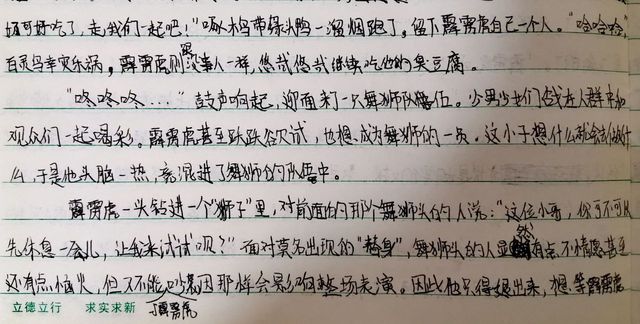 好可好吃了，走我们一起吧！"啄木鸟带绿头鸭一溜烟跑了，留下霹雳虎自己一个人。"哈哈哈，
百灵鸟幸灾乐祸，霹雳虎则跟没事人一样，悠哉悠哉继续吃他的臭豆腐。
"咚咚咚..."鼓声响起，迎面来了一只舞狮队伍。少男少女们也在人群中和
观众们一起喝彩。霹雳虎甚至跃跃欲试，也想成为舞狮的一员。这小子想什么就会去做什
么，于是他头脑一热，竟混进了舞狮的队伍中。
霹雳虎一头钻进一个"狮子"里，对前面的那个舞狮头的人说："这位小哥，你可不可以
先休息一会儿，让我来试试呗？"面对莫名出现的"替身"，舞狮头的人显然有点不情愿甚至
还有点恼火，但又不能吵，因那样会影响整场表演。因此他只得退出来，想等霹雳虎
立德立行 求实求新 霹雳虎